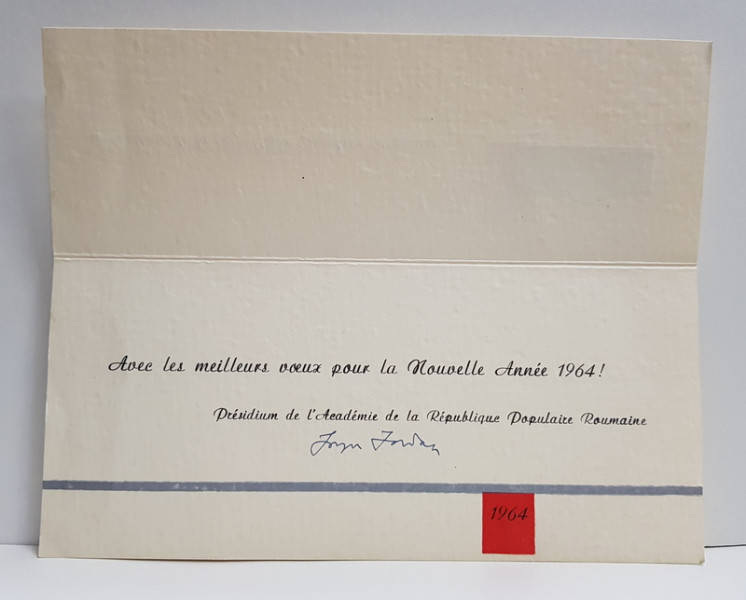 Avec les meilleurs vœux pour la Nouvelle Année 1964!
Présidium de l'Académie de la République Populaire Roumaine
Iorgu Iordan
1964